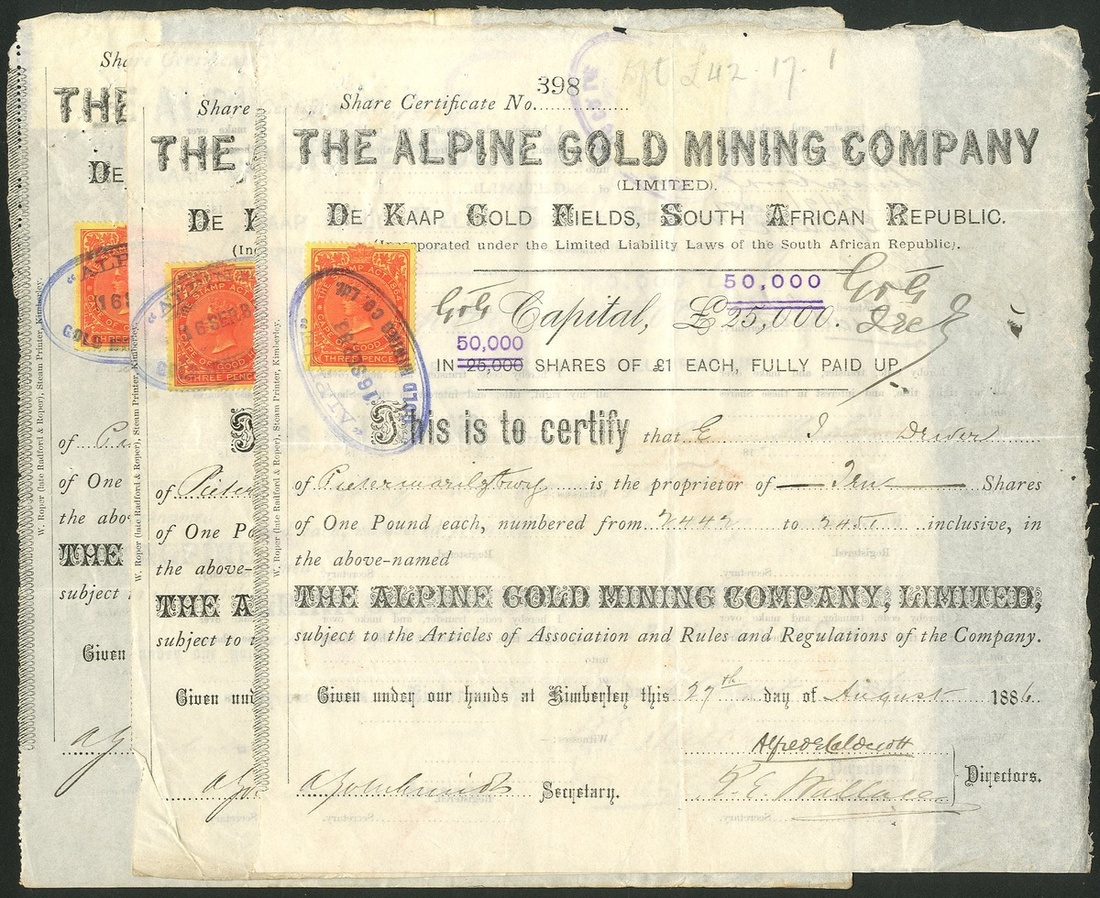 Share Certificate No. 398
THE ALPINE GOLD MINING COMPANY
(LIMITED).
DE KAAP GOLD FIELDS, SOUTH AFRICAN REPUBLIC.
(Incorporated under the Limited Liability Laws of the South African Republic).
50,000
Capital, £25,000.
50,000
IN 25,000 SHARES OF £1 EACH, FULLY PAID UP
This is to certify that
of Pietermaritzburg is the proprietor of Ten Shares
of One Pound each, numbered from 2442 to 2451 inclusive, in
the above-named
THE ALPINE GOLD MINING COMPANY, LIMITED,
subject to the Articles of Association and Rules and Regulations of the Company.
Given under our hands at Kimberley this 27th day of August 1886.
Alfred E Caldecott
Secretary.
R. E. Wallace
Directors.
W. Roper (late Radford & Roper), Steam Printer, Kimberley.
THREE PENCE
Share
THE
DE
of Pieter
of One Po
the above-
THE A
subject to
Given und
W. Roper (late Radford & Roper), Steam Printer, Kimberley.
THREE PENCE
Sha
THE
DE
of
of One
the abo
THE
subject
Given
W. Roper (late Radford & Roper), Steam Printer, Kimberley.
THREE